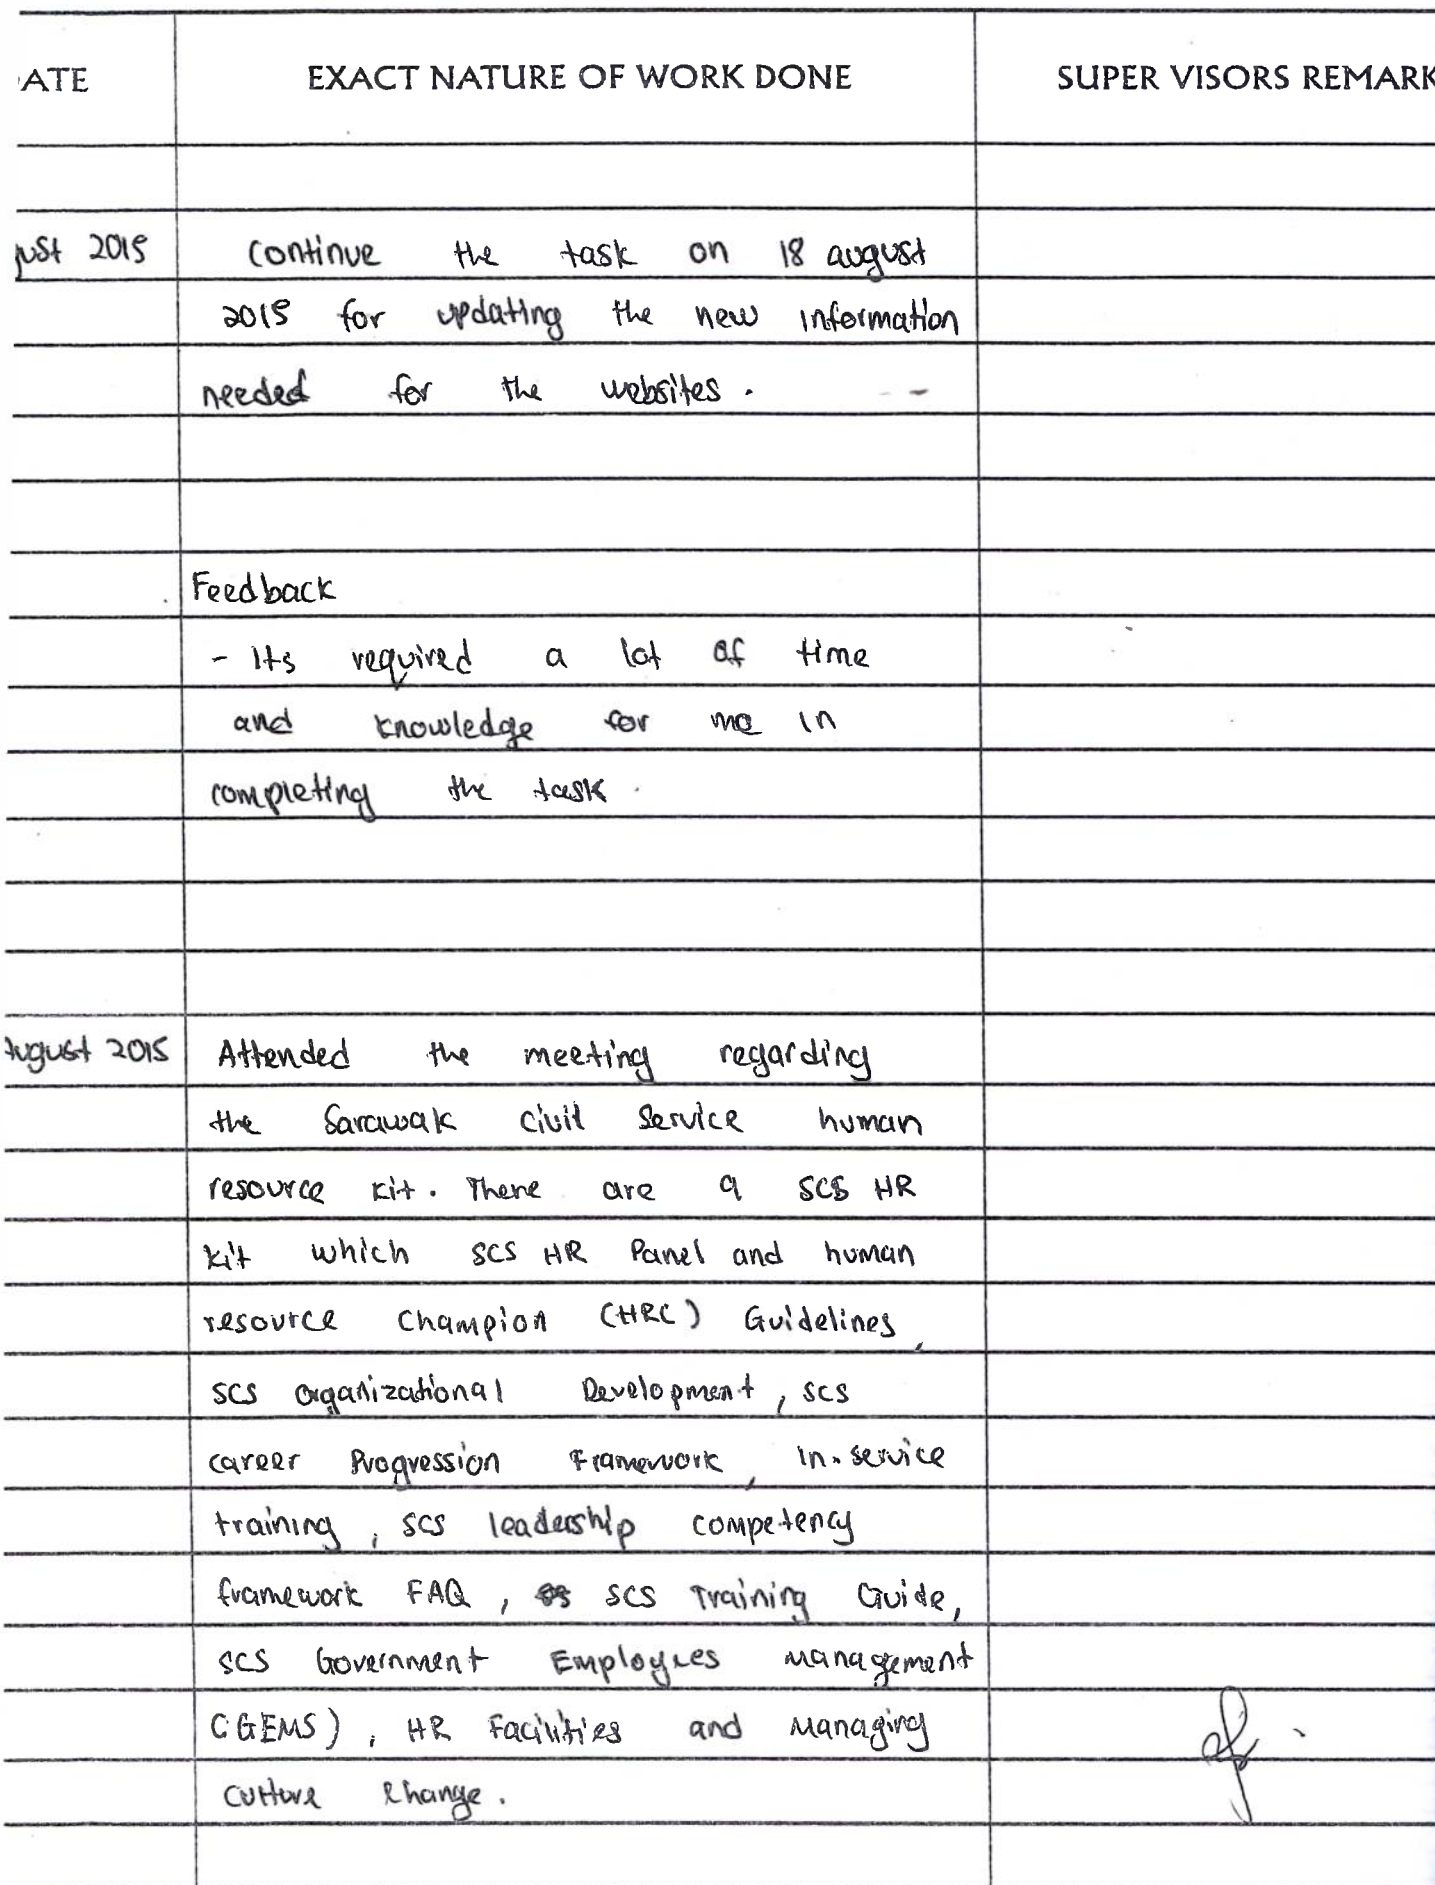 ATE EXACT NATURE OF WORK DONE SUPER VISORS REMARK
ust 2015 Continue the task on 18 august
2015 for updating the new information
needed for the websites.
Feedback
- Its required a lot of time
and knowledge for me in
completing the task.
August 2015 Attended the meeting regarding
the Sarawak Civil Service human
resource kit. There are 9 SCS HR
kit which SCS HR Panel and human
resource Champion (HRC) Guidelines,
SCS Organizational Development, SCS
career Progression Framework, In-service
training, SCS leadership competency
framework FAQ, SCS Training Guide,
SCS Government Employees Management
(GEMS), HR Facilities and Managing
Culture Change.